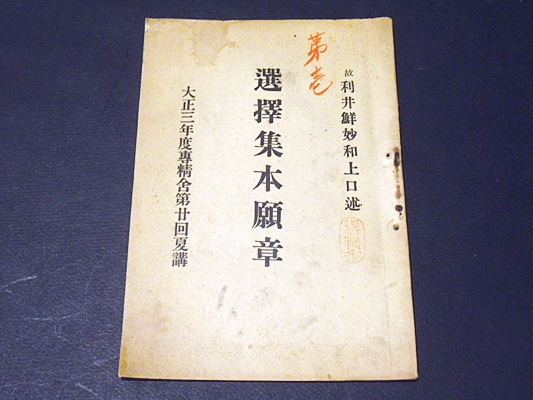 第壱
故利井鮮妙和上口述
選擇集本願章
大正三年度專精舍第廿回夏講